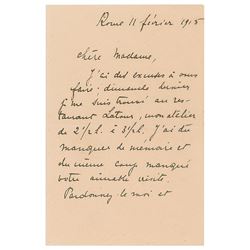 Rome 11 février 1915
Chère Madame,
J'ai des excuses à vous
faire: dimanche dernier
je me suis trouvé au res-
taurant Latour, mon atelier
de 2½ h. à 3½ h. J'ai du
manquer de mémoire et
du même coup manqué
votre aimable visite.
Pardonnez-le moi et